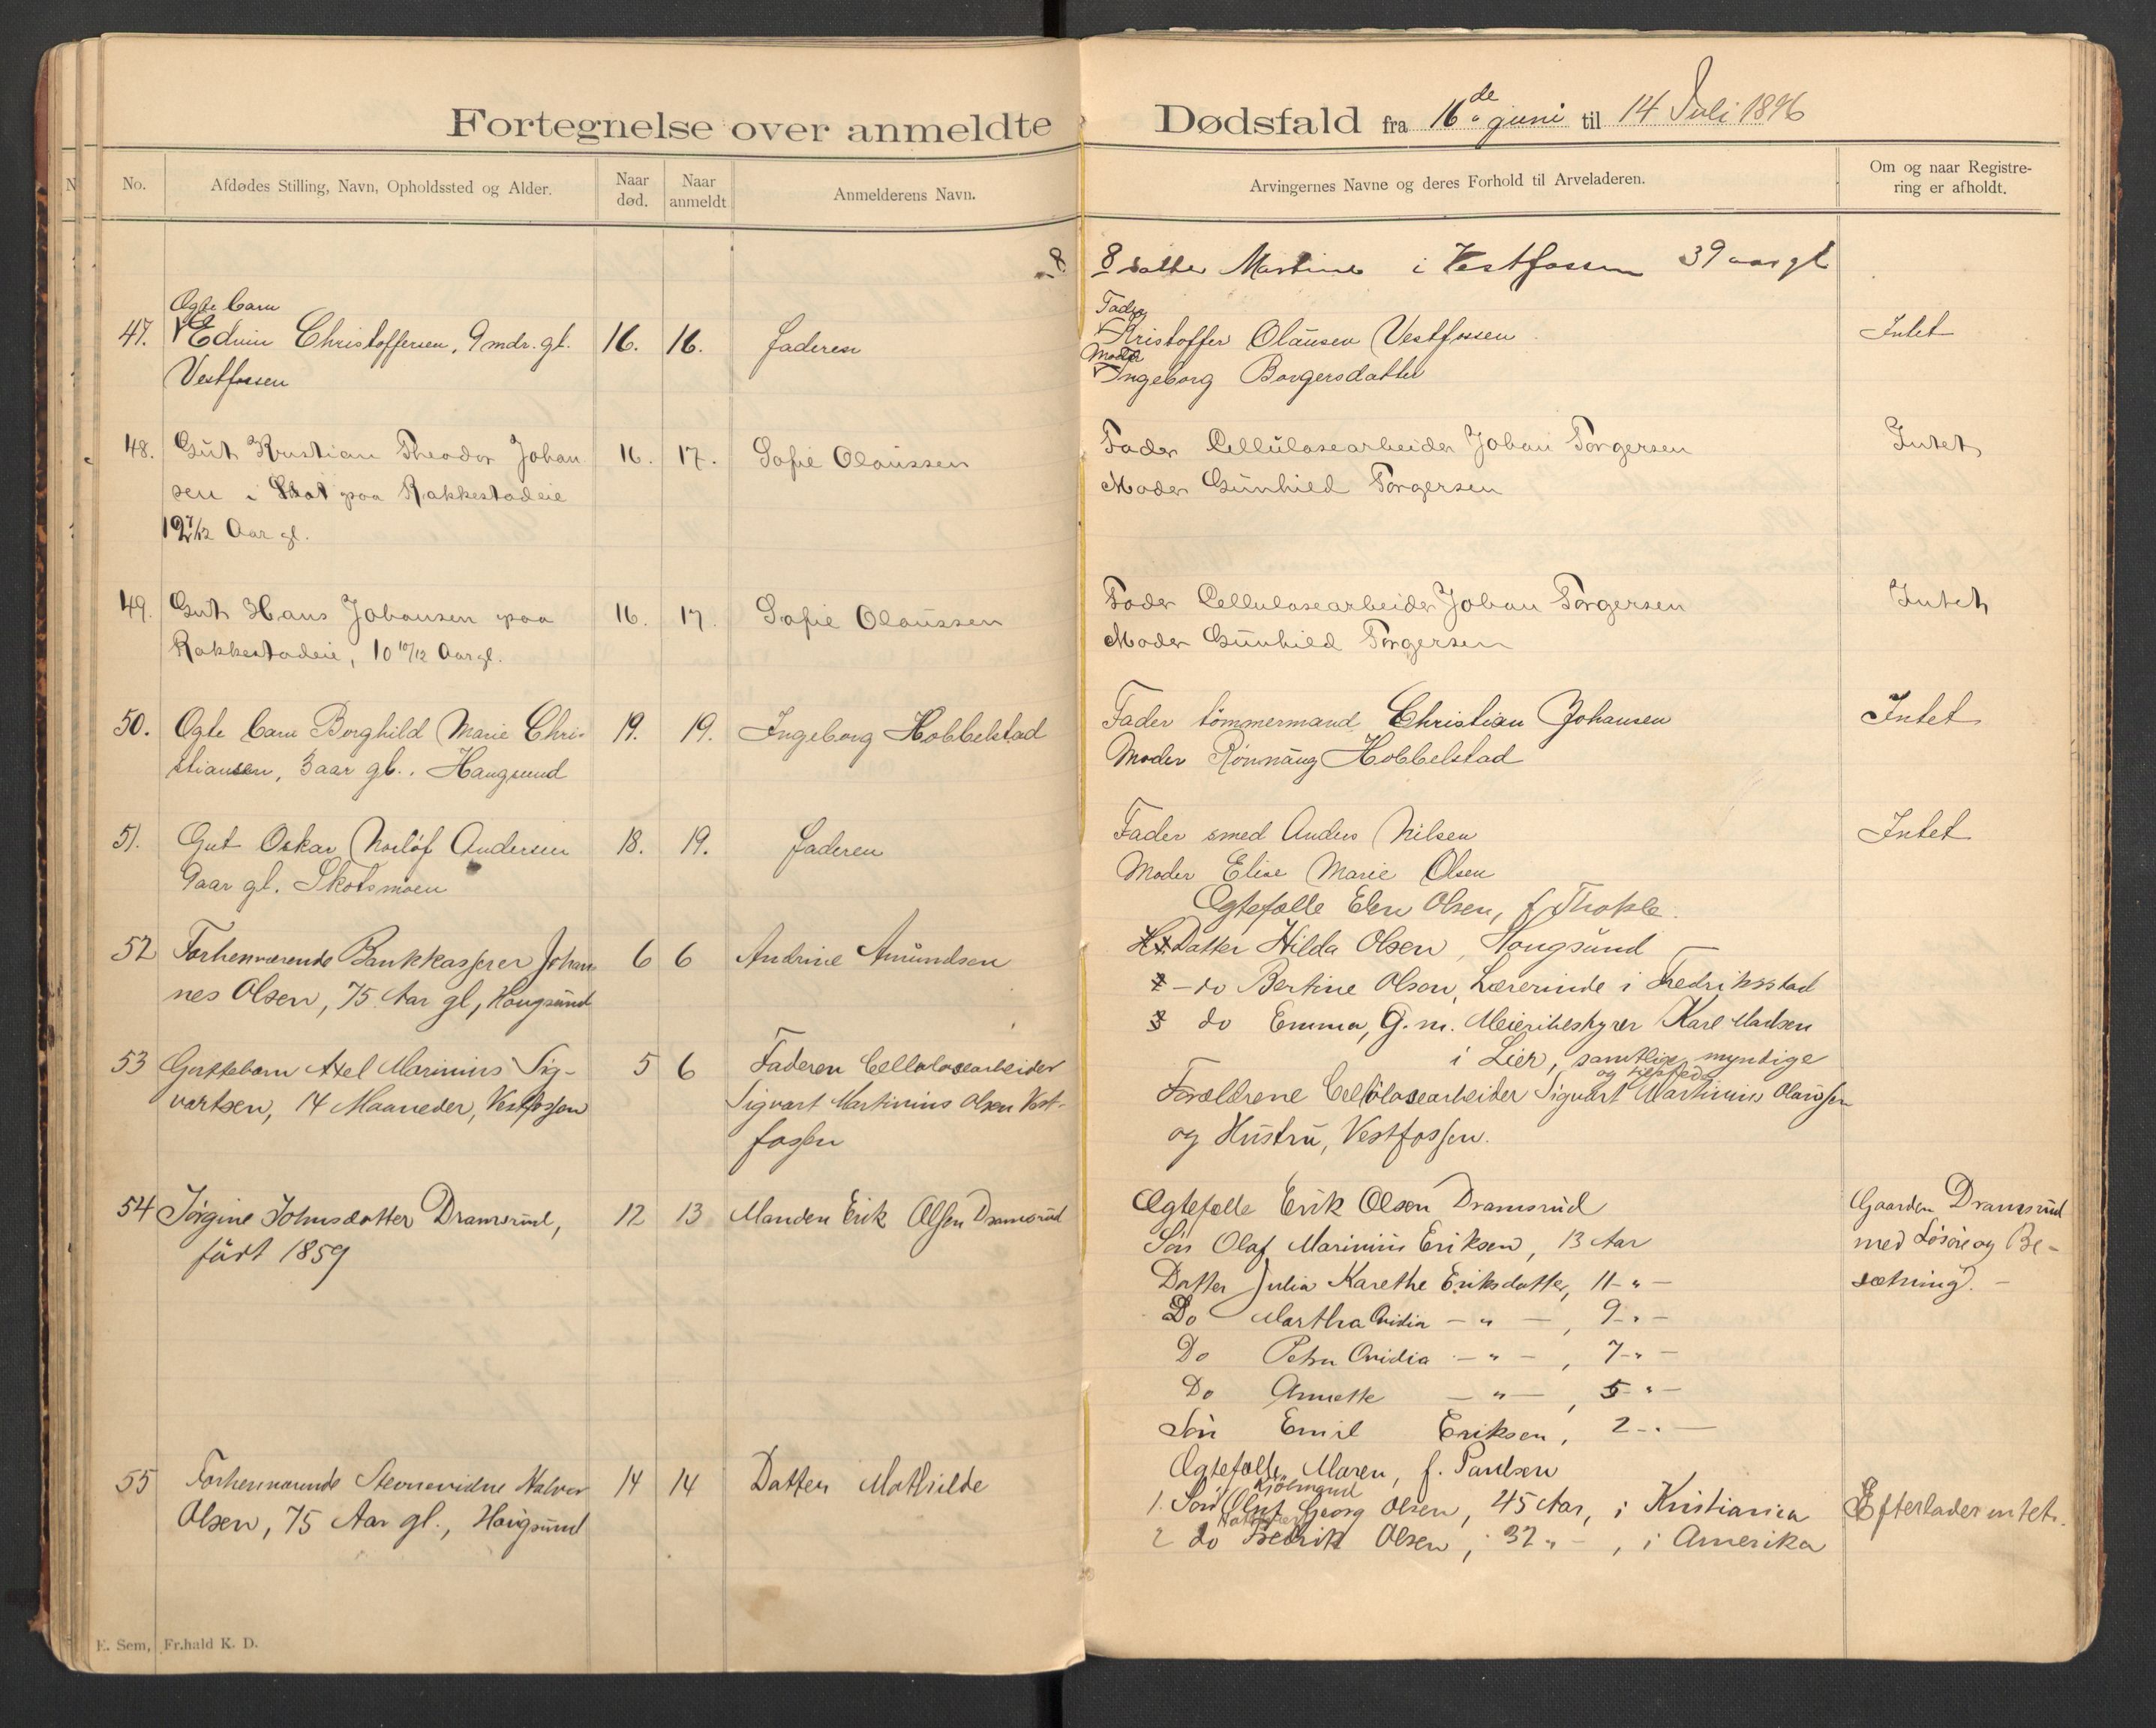 Fortegnelse over anmeldte Dødsfald fra 16de juni til 14 Juli 1896
No. Afdødes Stilling, Navn, Opholdssted og Alder. Naar død. Naar anmeldt Anmelderens Navn. Arvingernes Navne og deres Forhold til Arveladeren. Om og naar Registrering er afholdt.
8 8 datter Martine i Vestfossen 39 aar gl
Ægte barn
47. Edvin Christoffersen, 9 mdr. gl. 16. 16. faderen
Vestfossen
Fader
Kristoffer Olausen Vestfossen Intet
Moder
Ingeborg Borgersdatter
48. Gut Kristian Theodor Johan 16. 17. Sofie Olaussen
sen i paa Rakkestadeie
12 7/12 Aar gl.
Fader Cellulosearbeider Johan Torgersen Intet
Moder Gunhild Torgersen
49. Gut Hans Johansen paa 16. 17. Sofie Olaussen
Rakkestadeie, 10 10/12 Aar gl.
Fader Cellulosearbeider Johan Torgersen Intet
Moder Gunhild Torgersen
50. Ægte barn Borghild Marie Chri- 19. 19. Ingeborg Hobbelstad
stiansen, 3 aar gl. Haugsund
Fader tömmermand Christian Johansen Intet
Moder Rönnaug Hobbelstad
51. Gut Oskar Andersen 18. 19. faderen
9 aar gl. Skotsmoen
Fader smed Anders Nilsen Intet
Moder Elise Marie Olsen
52 Forhenværende Bankkasserer Johan 6 6 Andrine Amundsen
nes Olsen, 75 Aar gl, Hougsund
Ægtefælle Elen Olsen, f.
Datter Hilda Olsen, Hougsund
2 - do Bertine Olsen, Lærerinde i Fredriksstad
3 do Emma, G. m. Meieribestyrer Karl Madsen
i Lier, samtlige myndige
53 Guttebarn Axel Marinius Sig- 5 6 Faderen Cellulosearbeider
vartsen, 14 Maaneder, Vestfossen Sigvart Martinius Olsen Vest-
fossen
Forældrene Cellulosearbeider Sigvart Martinius Olaussen
og Hustru, Vestfossen.
54 Jørgine Johnsdatter Dramsrud, 12 13 Manden Erik Olsen Dramsrud
født 1859
Ægtefælle Erik Olsen Dramsrud Gaarden Dramsrud
Søn Olaf Marinius Eriksen, 13 Aar med Løsøre og Be-
Datter Julia Karethe Eriksdatter, 11 - " - sætning. -
Do Martha Ovidia - " - , 9 - " -
Do Petra Ovidia - " - , 7 - " -
Do Annette - " - , 5 - " -
Søn Emil Eriksen, 2 - " -
55 Forhenværende Stevnevidne Halvor 14 14 Datter Mathilde
Olsen, 75 Aar gl., Hougsund
Ægtefælle Maren, f. Paulsen
Kjøbmand
1. Søn Olaf Georg Olsen, 45 Aar, i Kristiania Efterlader intet.
2 do Fredrik Olsen, 37 " - , i Amerika
E. Sem, Fr.hald K. D.